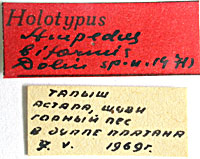 Holotypus
Ampedus
biformis
Dolin sp. n. 1971)
ТАЛЫШ
АСТАРА, ЩУВИ
ГОРНЫЙ ЛЕС
В ДУПЛЕ ПЛАТАНА
7 V. 1969г.